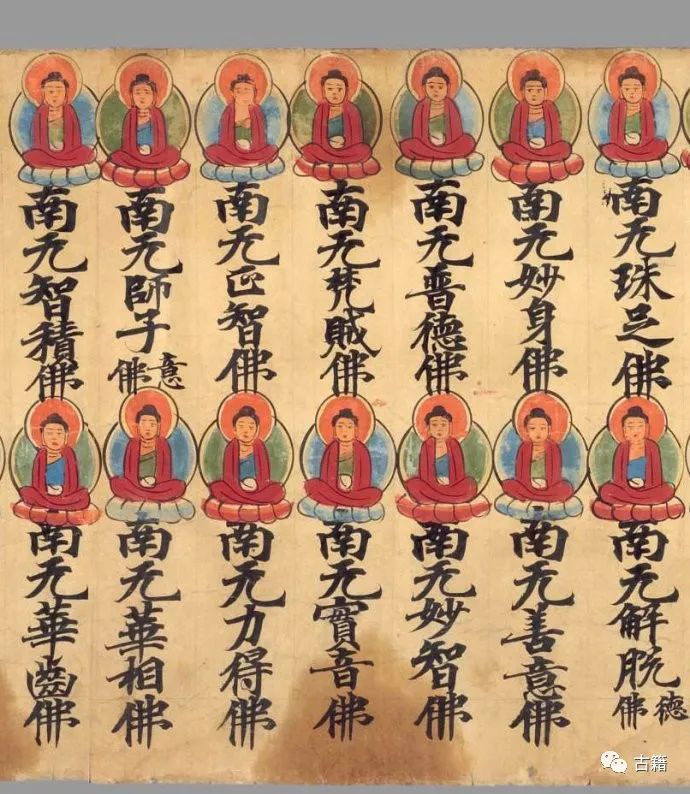 南无珠足佛
南无妙身佛
南无普德佛
南无梵賊佛
南无正智佛
南无師子意佛
南无智積佛
南无解脱德佛
南无善意佛
南无妙智佛
南无實音佛
南无力得佛
南无華相佛
南无華齒佛
古籍